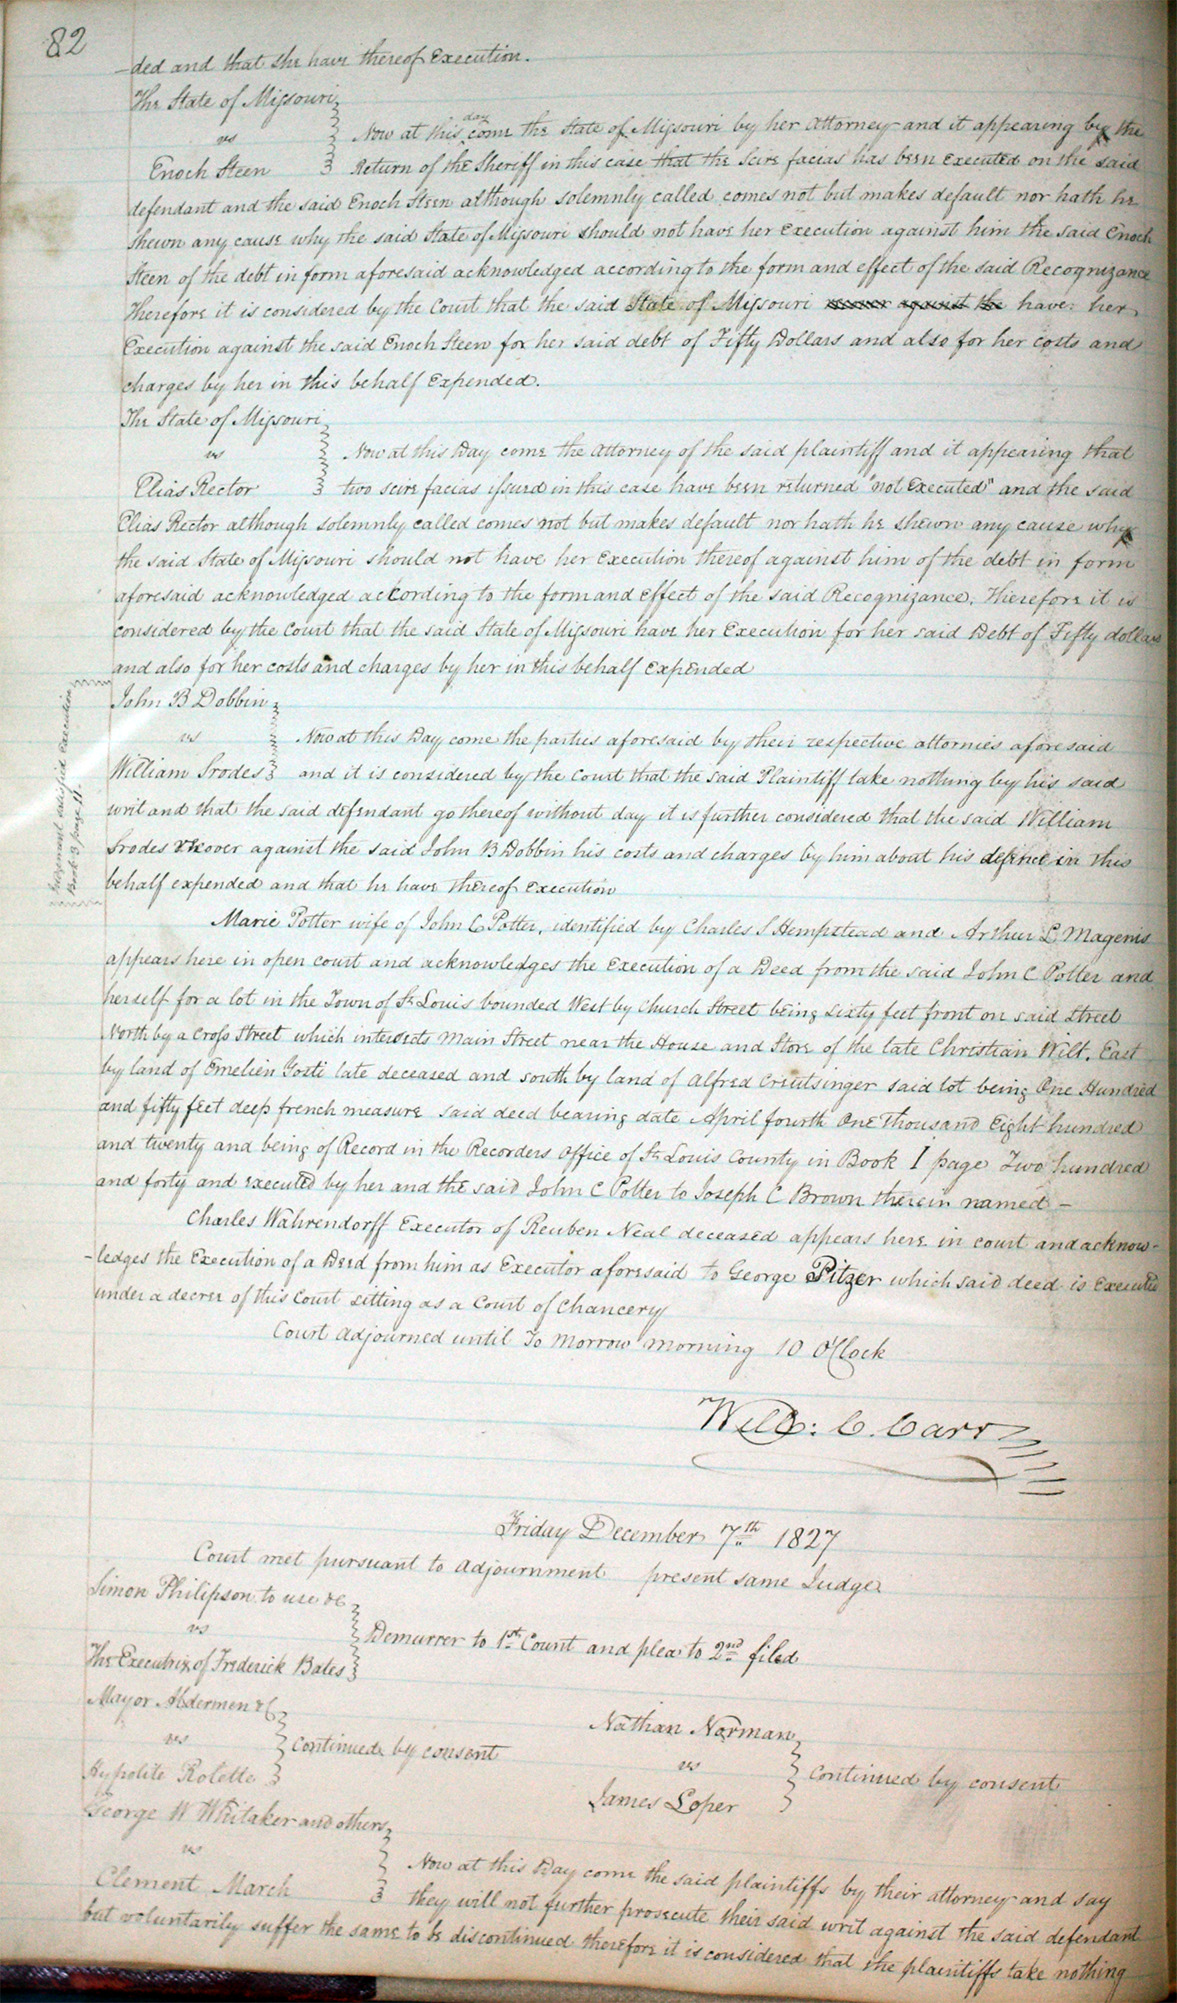 82
-ded and that she have thereof Execution.
The State of Missouri
vs
Enoch Steen
Now at this day come the State of Missouri by her Attorney and it appearing by the
Return of the Sheriff in this case that the scire facias has been Executed on the said
defendant and the said Enoch Steen although solemnly called comes not but makes default nor hath he
shewn any cause why the said State of Missouri should not have her Execution against him the said Enoch
Steen of the debt in form aforesaid acknowledged according to the form and effect of the said Recognizance
Therefore it is considered by the Court that the said State of Missouri recover against the have her
Execution against the said Enoch Steen for her said debt of Fifty Dollars and also for her costs and
charges by her in this behalf Expended.
The State of Missouri
vs
Elias Rector
Now at this Day come the Attorney of the said plaintiff and it appearing that
two scire facias issued in this case have been returned "not Executed" and the said
Elias Rector although solemnly called comes not but makes default nor hath he shewn any cause why
the said State of Missouri should not have her Execution thereof against him of the debt in form
aforesaid acknowledged according to the form and Effect of the said Recognizance. Therefore it is
considered by the Court that the said State of Missouri have her Execution for her said Debt of Fifty dollars
and also for her costs and charges by her in this behalf Expended
Judgement satisfied Execution
Book 3 page 11.
John B Dobbin
vs
William Srodes
Now at this Day come the parties aforesaid by their respective attornies aforesaid
and it is considered by the Court that the said Plaintiff take nothing by his said
writ and that the said defendant go thereof without day it is further considered that the said William
Srodes recover against the said John B Dobbin his costs and charges by him about his defence in this
behalf expended and that he have thereof Execution
Marie Potter wife of John C Potter, identified by Charles S Hempstead and Arthur L Magenis
appears here in open court and acknowledges the Execution of a Deed from the said John C Potter and
herself for a lot in the Town of St Louis bounded West by Church Street being sixty feet front on said Street
North by a Cross Street which intersects Main Street near the House and Store of the late Christian Wilt. East
by land of Emelien Yosti late deceased and south by land of Alfred Creutsinger said lot being One Hundred
and fifty feet deep french measure said deed bearing date April fourth One Thousand Eight hundred
and twenty and being of Record in the Recorders office of St Louis County in Book I page Two hundred
and forty and executed by her and the said John C Potter to Joseph C Brown therein named -
Charles Wahrendorff Executor of Reuben Neal deceased appears here in court and acknow-
-ledges the Execution of a Deed from him as Executor aforesaid to George Pitzer which said deed is Executed
under a decree of this Court sitting as a Court of Chancery
Court Adjourned until To Morrow morning 10 O'Clock
Will: C. Carr
Friday December 7th 1827
Court met pursuant to adjournment present same Judge
Simon Philipson to use &c
vs
The Executrix of Frederick Bates
Demurrer to 1st Count and plea to 2nd filed
Mayor Aldermen &c
vs
Hypolite Rolette
Continued by consent
Nathan Norman
vs
James Loper
Continued by consent
George W Whitaker and others
vs
Clement March
Now at this Day come the said plaintiffs by their attorney and say
they will not further prosecute their said writ against the said defendant
but voluntarily suffer the same to be discontinued therefore it is considered that the plaintiffs take nothing